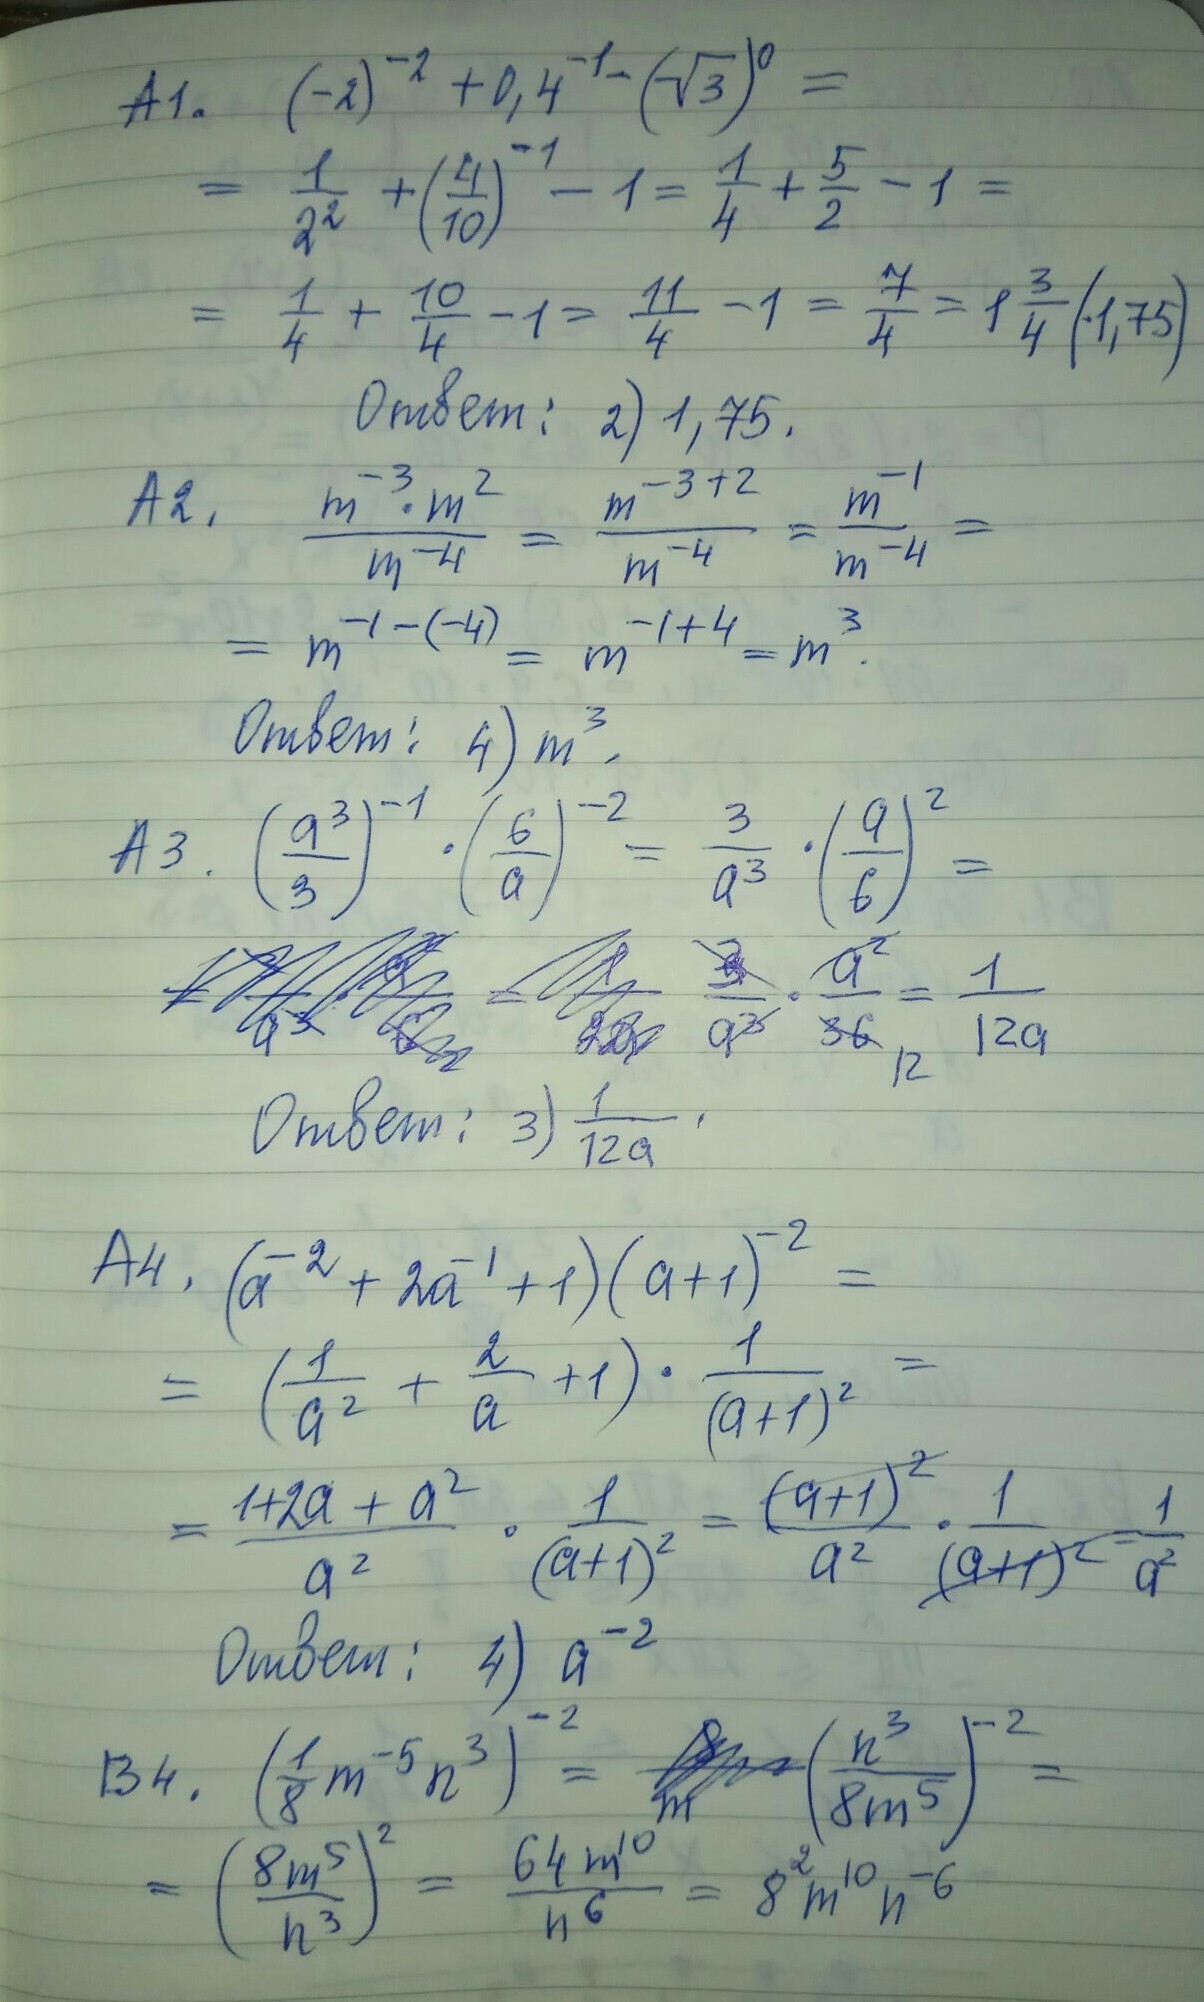 A1. (-2)^-2 + 0,4^-1 - (-√3)^0 =
= 1/2^2 + (4/10)^-1 - 1 = 1/4 + 5/2 - 1 =
= 1/4 + 10/4 - 1 = 11/4 - 1 = 7/4 = 1 3/4 (1,75)
Ответ: 2) 1,75.
A2. m^-3 · m^2 / m^-4 = m^-3+2 / m^-4 = m^-1 / m^-4 =
= m^-1-(-4) = m^-1+4 = m^3.
Ответ: 4) m^3.
A3. (a^3/3)^-1 · (6/a)^-2 = 3/a^3 · (a/6)^2 =
3/a^3 · a^2/36 12 = 1/12a
Ответ: 3) 1/12a.
A4. (a^-2 + 2a^-1 + 1)(a+1)^-2 =
= (1/a^2 + 2/a + 1) · 1/(a+1)^2 =
= 1+2a+a^2 / a^2 · 1/(a+1)^2 = (a+1)^2/a^2 · 1/(a+1)^2 = 1/a^2
Ответ: 4) a^-2
B4. (1/8 m^-5 n^3)^-2 = (n^3/8m^5)^-2 =
= (8m^5/n^3)^2 = 64m^10/n^6 = 8^2 m^10 n^-6